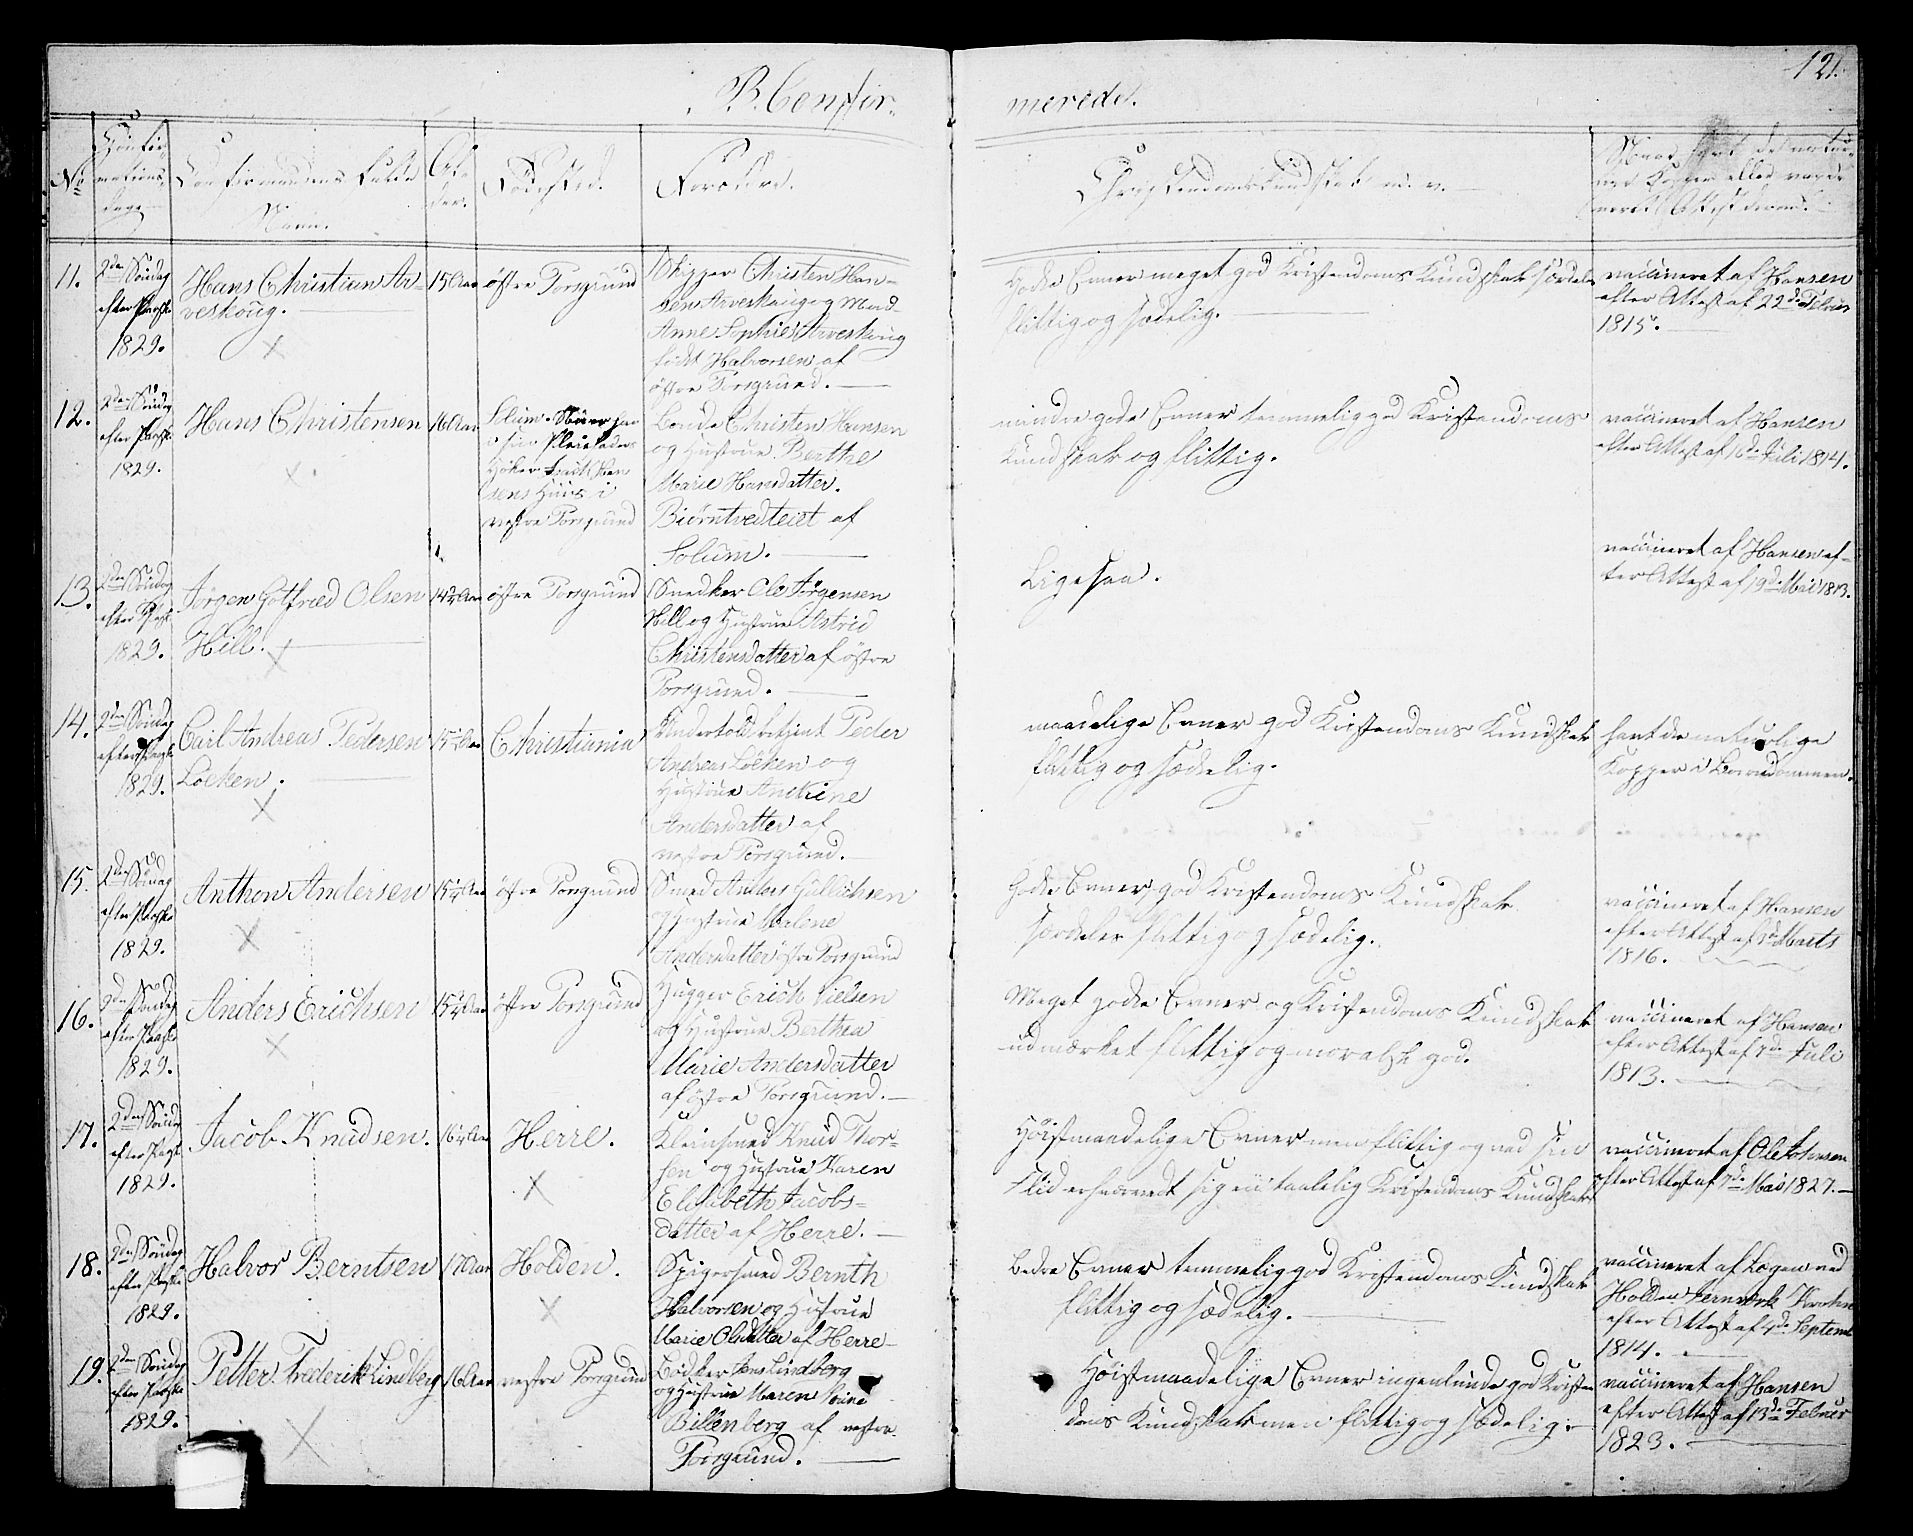 121.
B. Confir-
meredes.
No
Confir-
mations-
dage
Confirmandens fulde
Navn.
Al-
der.
Fødested.
Forældre.
Christendomskundskab m. v.
11.
2den Søndag
efter Paaske
1829.
Hans Christian Ar-
veskoug.
15 Aar
østre Porsgrund
Skipper Christen Han-
sen Arveskoug og Mad.
Anne Sophie Arveskoug
født Halvorsen af
østre Porsgrund.
Gode Evner meget god Kristendoms Kundskab særdeles
flittig og sædelig.
vaccineret af Hansen
efter Attest af 22de Februar
1815.
12.
2den Søndag
efter Paaske
1829.
Hans Christensen
16 Aar
Solum
Høker
sens Huus i
vestre Porsgrund
Bonde Christen Hansen
og Hustrue Berthe
Marie Hansdatter.
Biørntvedteiet af
Solum.
mindre gode Evner temmelig god Kristendoms
Kundskab og flittig.
vaccineret af Hansen
efter Attest af 16de Juli 1814.
13.
2den Søndag
efter Paaske
1829.
Jørgen Gotfried Olsen
Hill.
østre Porsgrund
Snedker Ole Jørgensen
Hill og Hustrue Astrid
Christensdatter af østre
Porsgrund.
Ligesaa.
vaccineret af Hansen ef-
ter Attest af 19de Mai 1813.
14.
2den Søndag
efter Paaske
1829.
Carl Andreas Pedersen
Løcken.
Christiania
Undertoldbetjent Peder
Andreas Løcken og
Hustrue
Andersdatter af
vestre Porsgrund.
maadelige Evner god Kristendoms Kundskab
flittig og sædelig.
havt de naturlige
Kopper i Barndommen.
15.
2den Søndag
efter Paaske
1829.
Anthon Andersen
østre Porsgrund
Smed Anders Gullichsen
og Hustrue Malene
Andersdatter østre Porsgrund
Gode Evner, god Kristendoms Kundskab
særdeles flittig og sædelig.
vaccineret af Hansen
efter Attest af Marts
1816.
16.
2den Søndag
efter Paaske
1829.
Anders Erichsen
østre Porsgrund
Hugger Erich Nielsen
og Hustrue Berthea
Marie Andersdatter
af østre Porsgrund.
Meget gode Evner og Kristendoms Kundskab
udmærket flittig og moralsk god.
vaccineret af Hansen
efter Attest af 7de Juli
1813.
17.
2den Søndag
efter Paaske
1829.
Jacob Knudsen.
Herre.
Kleinsmed Knud Thor-
sen og Hustrue Karen
Elisabeth Jacobs-
datter af Herre.
Høistmaadelige Evner men flittig og ved sin
Flid erhvervedt sig en taalelig Kristendoms Kundskab
vaccineret af Ole Johnsen
efter Attest af 7de Mai 1827.
18.
2den Søndag
efter Paaske
1829.
Halvor Berntsen
17 Aar
Holden.
Spigersmed Bernth
Halvorsen og Hustrue
Marie Olsdatter af Herre
Bedre Evner temmelig god Kristendoms Kundskab
flittig og sædelig.
vaccineret af Lægen ved
Holden Jernværk Krohn
efter Attest af 4de Septemb
1814.
19.
2den Søndag
efter Paaske
1829.
Petter Frederik Lindberg
16 Aar
vestre Porsgrund
Bødker Jens Lindberg
og Hustrue Maren
Billenberg af vestre
Porsgrund.
Høistmaadelige Evner ingenlunde god Kristen
doms Kundskab men flittig og sædelig.
vaccineret af Hansen
efter Attest af 13de Februar
1823.